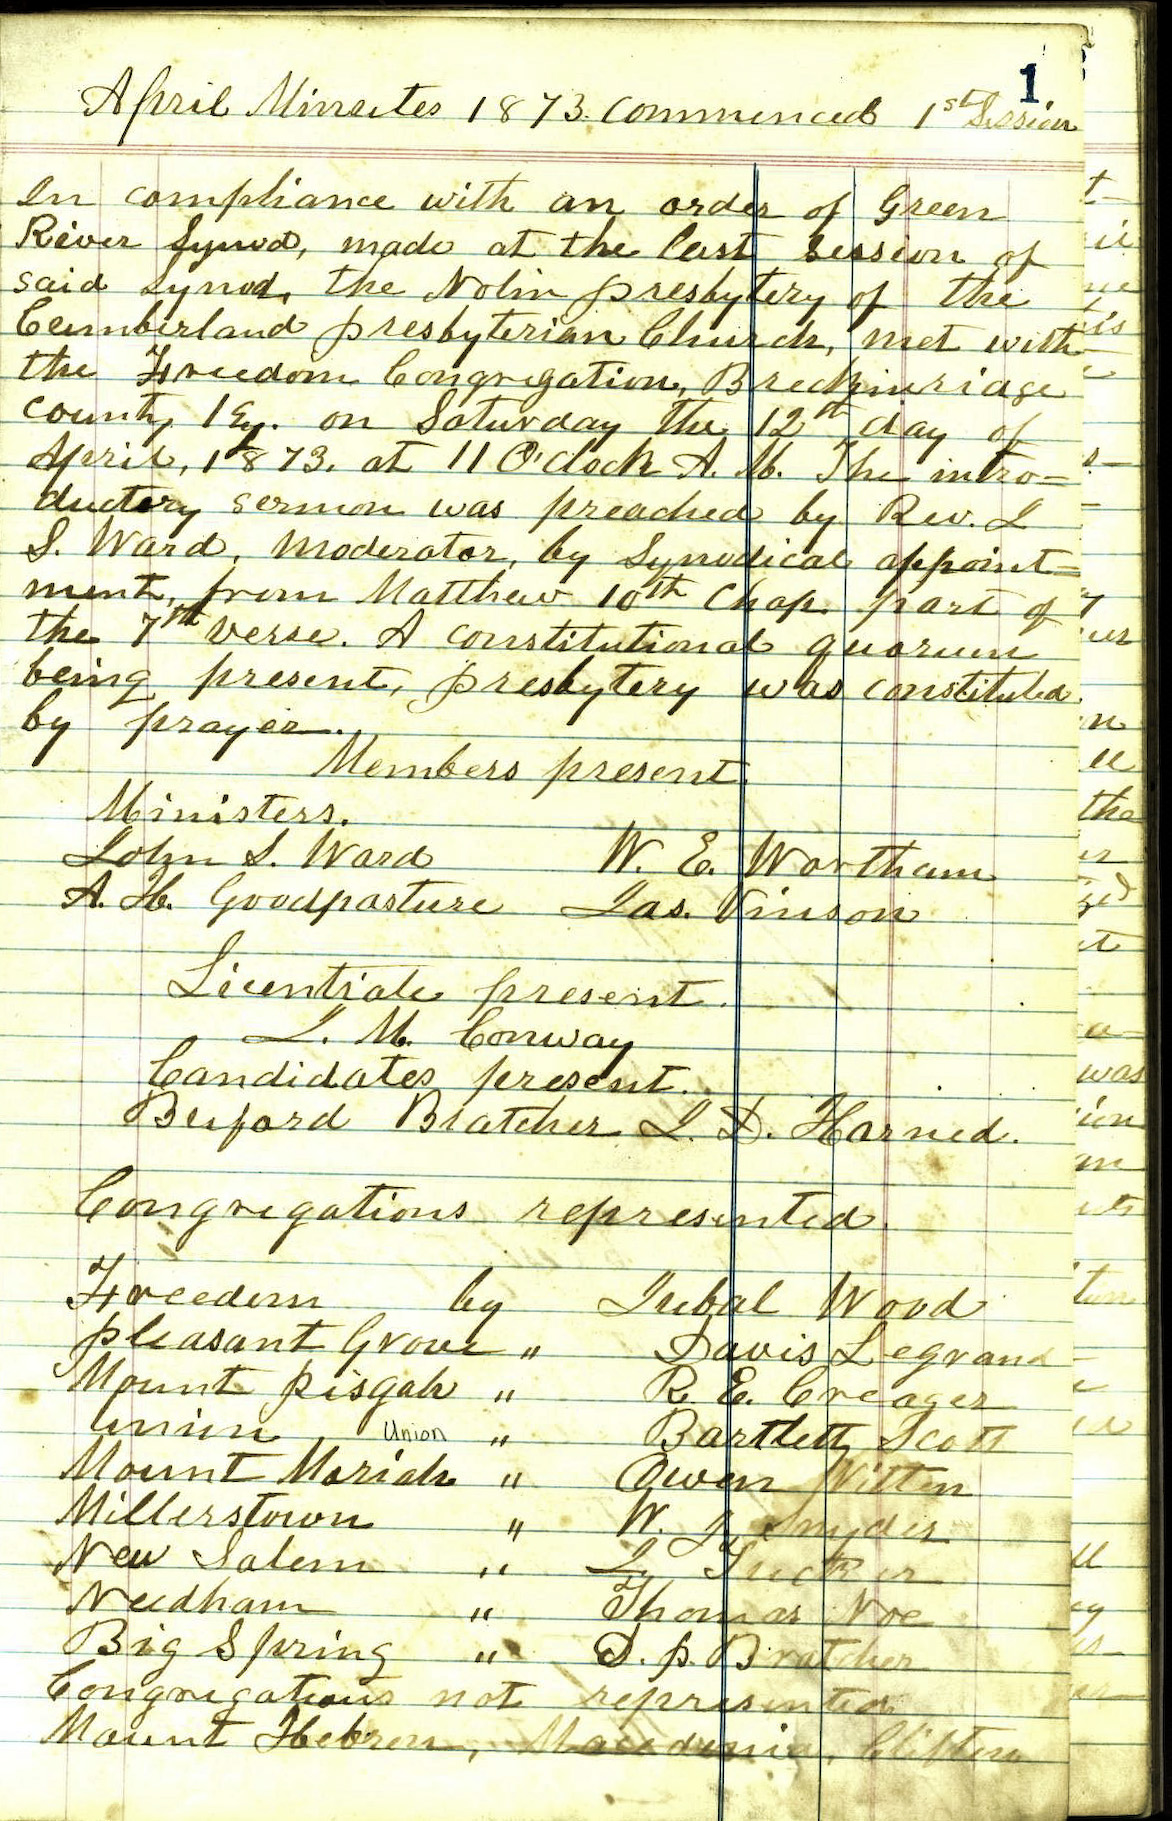 1
April Minutes 1873. Commenced 1st Session
In compliance with an order of Green
River Synod, made at the last session of
said Synod, the Nolin presbytery of the
Cumberland presbyterian Church, met with
the Freedom Congregation, Breckinridge
county, Ky. on Saturday the 12th day of
April, 1873. at 11 O'clock A. M. The intro=
ductory sermon was preached by Rev. J
S. Ward, Moderator, by Synodical appoint=
ment, from Matthew 10th Chap. part of
the 7th verse. A constitutional quorum
being present, presbytery was constituted
by prayer.
Members present.
Ministers.
John S. Ward W. E. Wortham
A. H. Goodpasture Jas. Vinson
Licentiate present.
J. M. Conway
Candidates present.
Buford Bratcher J. D. Harned.
Congregations represented.
Freedom by Jubal Wood
pleasant Grove " Davis Legrand
Mount pisgah " R. E. Creager
Union Union " Bartlett Scott
Mount Moriah " Owen Nitten
Millerstown " W. Snyder
New Salem " Tucker
Needham " Thomas Noe
Big Spring " D. p. Bratcher
Congregations not represented
Mount Hebron, Macedonia, Clifton